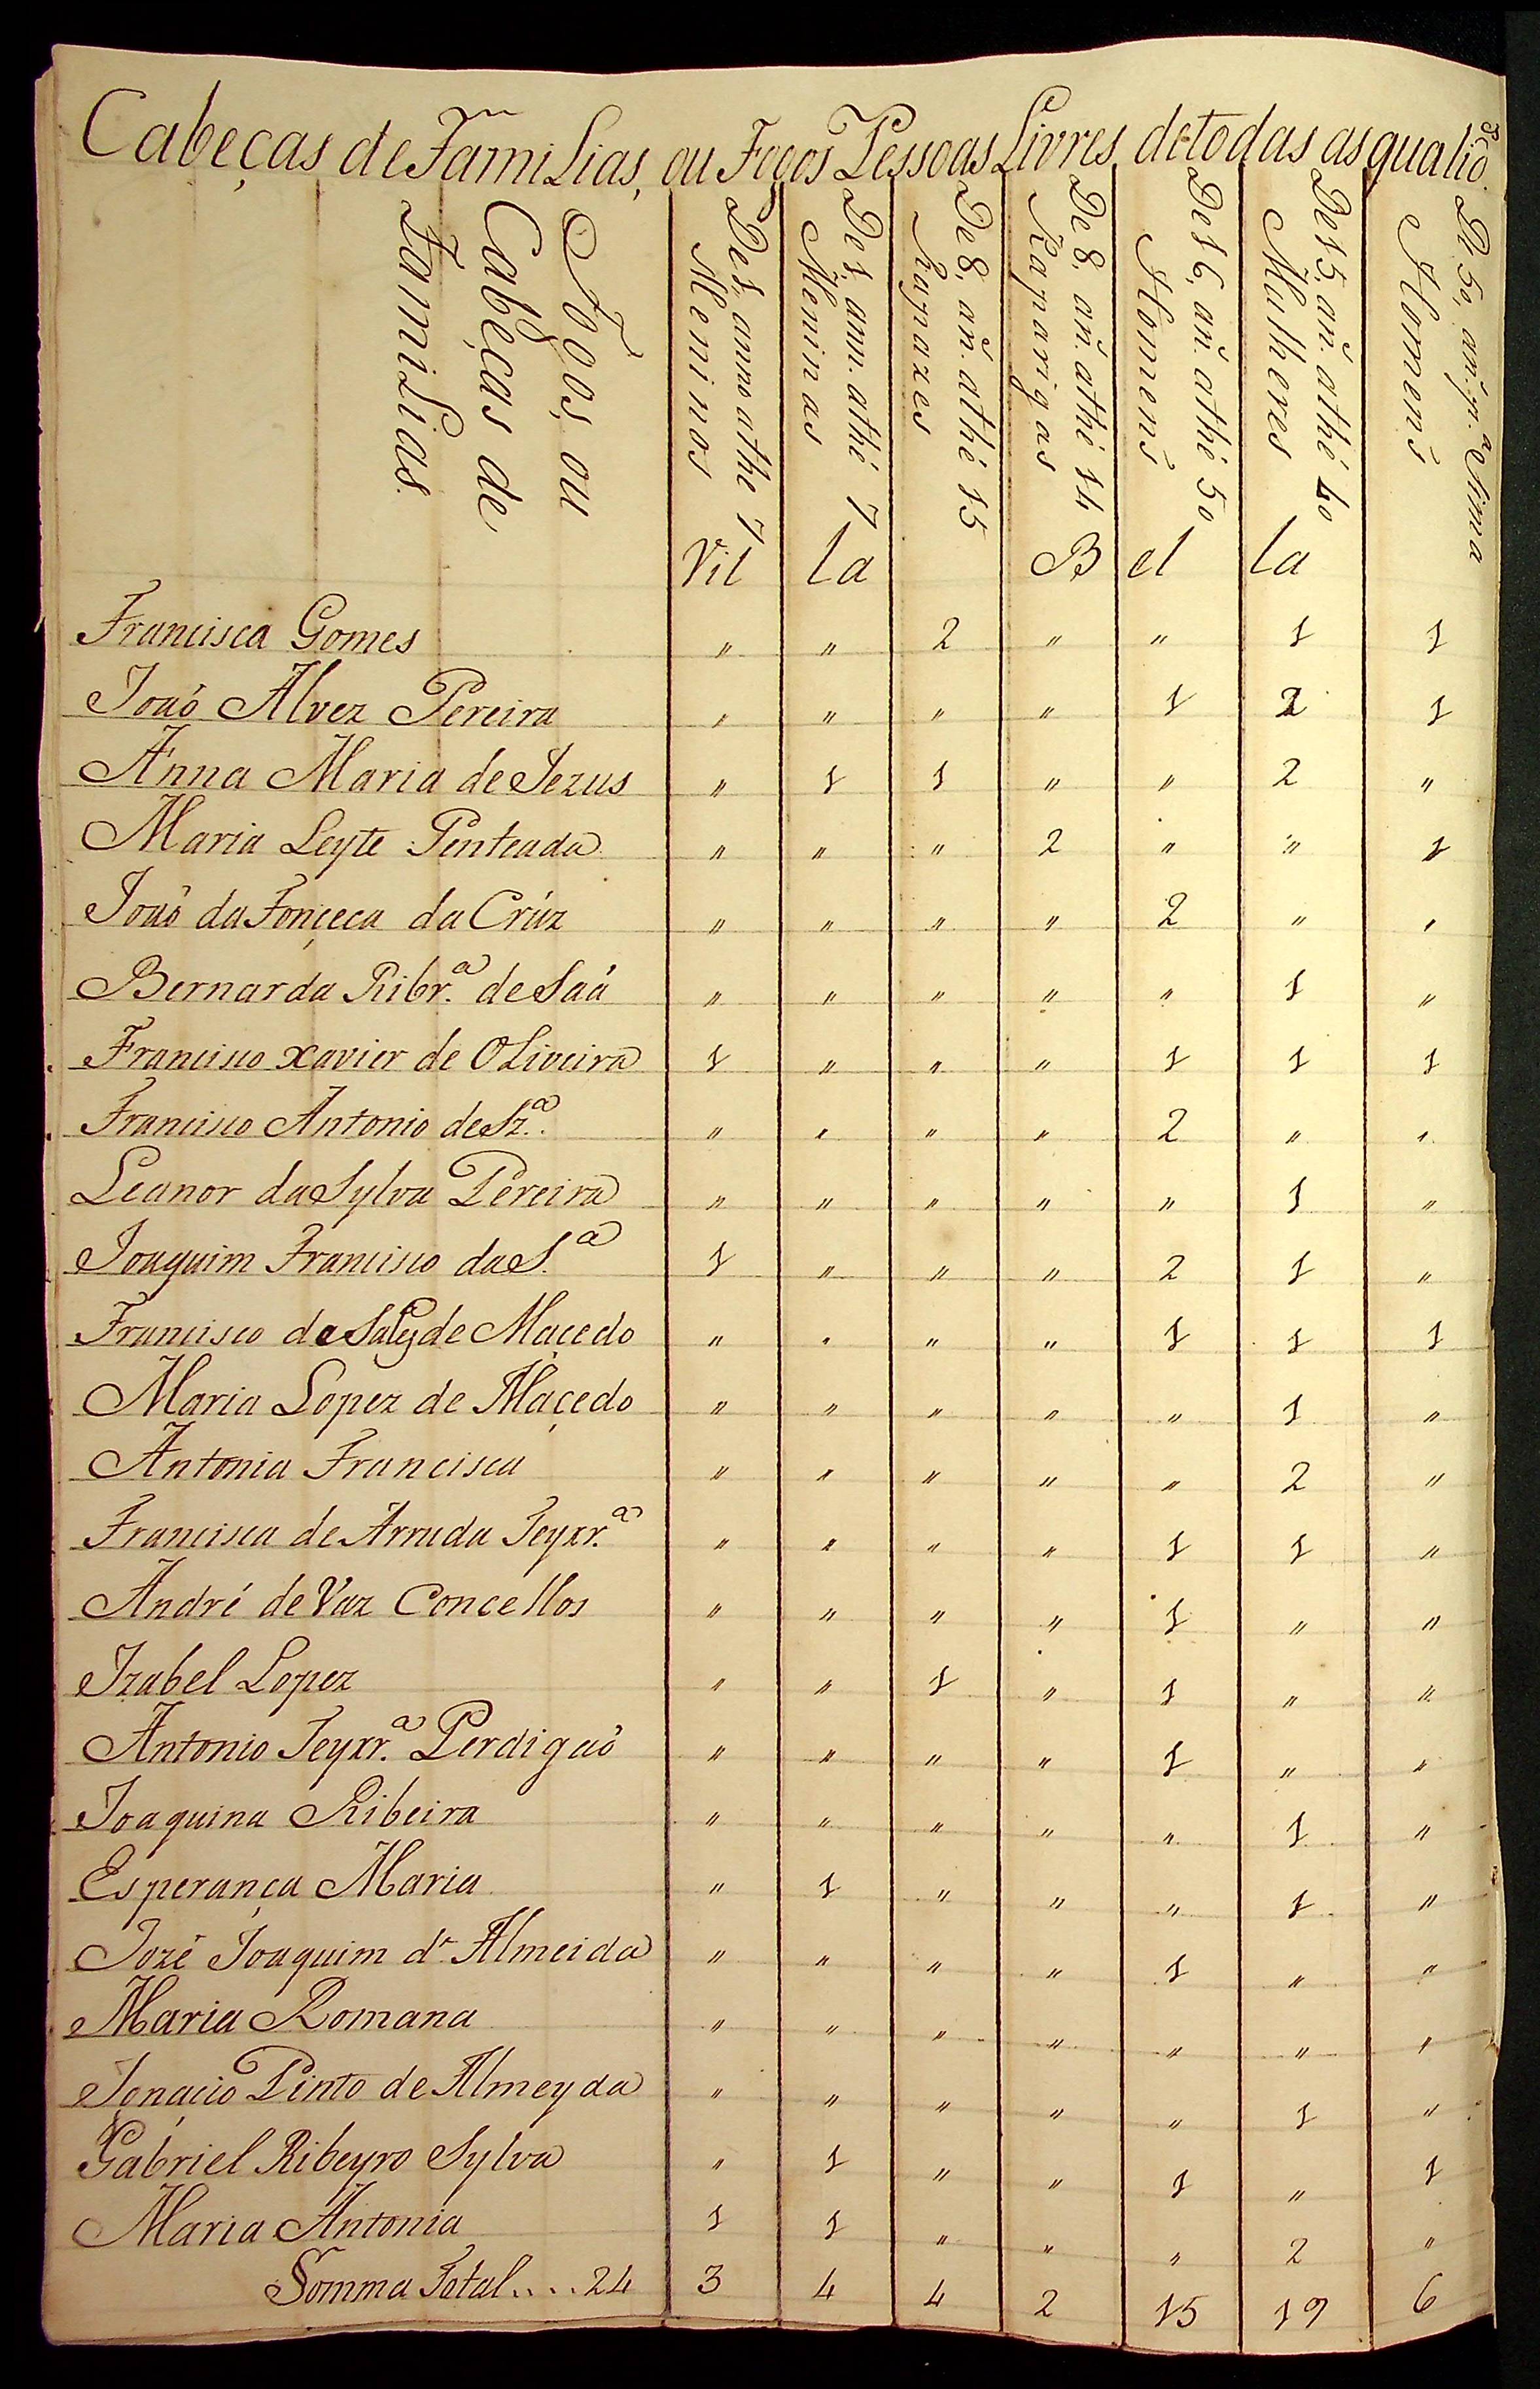 Cabeças de Familias, ou Fogos Pessoas Livres, de todas as qualid.es
Fogos, ou
Cabeças de
Familias.
De 1, anno athe 7
Meninos
De 1, ann. athé 7
Meninas
De 8, añ. athé 15
Rapazes
De 8, añ. athé 14
Raparigas
De 16, añ. athé 50
Homens
De 15, añ. athé 40
Mulheres
De 50, añ. p.a Sima
Homens
Vil la B el la
Francisca Gomes " " 2 " " 1 1
Joaõ Alvez Pereira " " " " 1 2 1
Anna Maria de Jezus " 1 1 " " 2 "
Maria Leyte Penteada " " " 2 " " 1
Joaõ da Fonçeca da Crúz " " " " 2 " "
Bernarda Ribr.a de Saá " " " " " 1 "
Francisco Xavier de OLiveira 1 " " " 1 1 1
Francisco Antonio de Sz.a " " " " 2 " "
Leanor da Sylva Pereira " " " " " 1 "
Joaquim Francisco da S.a 1 " " " 2 1 "
Francisco de Sales de Maçedo " " " " 1 1 1
Maria Lopez de Maçedo " " " " " 1 "
Antonia Francisca " " " " " 2 "
Francisca de Arruda Teyxr.a " " " " 1 1 "
André de Vaz Concellos " " " " 1 " "
Izabel Lopez " " 1 " 1 " "
Antonio Teyxr.a Perdigaõ " " " " 1 " "
Joaquina Ribeira " " " " " 1 "
Esperança Maria " 1 " " " 1 "
Jozé Joaquim d' Almeida " " " " 1 " "
Maria Romana " " " " " " "
Ignaçio Pinto de Almeyda " " " " " 1 "
Gabriel Ribeyro Sylva " 1 " " 1 " 1
Maria Antonia 1 1 " " " 2 "
Somma Total.... 24 3 4 4 2 15 19 6